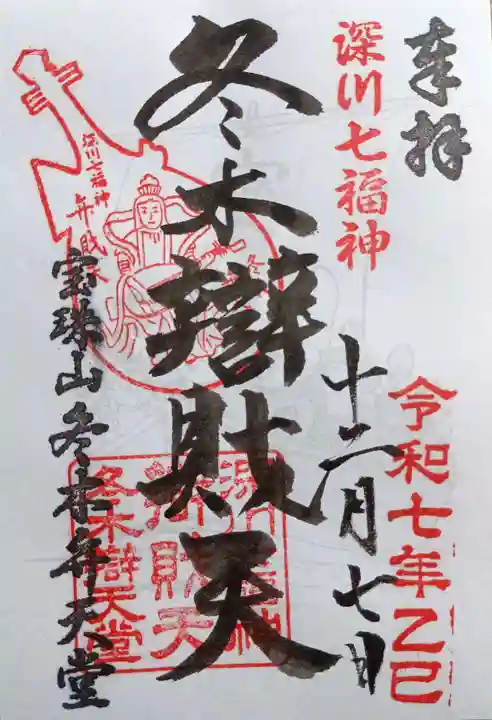 奉拝
深川七福神
令和七年乙巳
十二月七日
冬木辯財天
深川七福神
弁財天
冬木辯天堂
宝珠山冬木弁天堂